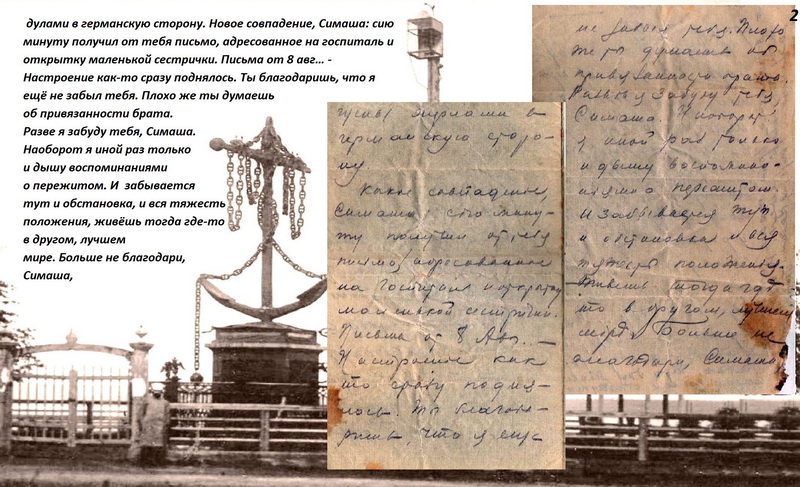 2
дулами в германскую сторону. Новое совпадение, Симаша: сию
минуту получил от тебя письмо, адресованное на госпиталь и
открытку маленькой сестрички. Письма от 8 авг... -
Настроение как-то сразу поднялось. Ты благодаришь, что я
ещё не забыл тебя. Плохо же ты думаешь
об привязанности брата.
Разве я забуду тебя, Симаша.
Наоборот я иной раз только
и дышу воспоминаниями
о пережитом. И  забывается
тут и обстановка, и вся тяжесть
положения, живёшь тогда где-то
в другом, лучшем
мире. Больше не благодари,
Симаша,
дулами в
германскую сторо-
ну
совпадение,
Симаша: сию мину-
ту получил от тебя
письмо, адресованное
на госпиталь и открытку
маленькой сестрички.
Письма от 8 Авг. —
Настроение как
то сразу подня-
лось. Ты благода-
ришь, что я еще
не забыл тебя. Плохо
же ты думаешь об
привязанности брата.
Разве я забуду тебя,
Симаша. Наоборот
я иной раз только
и дышу воспомина-
ниями о пережитом.
И забывается тут
и обстановка и вся
тяжесть положения.
Живешь тогда где
то в другом, лучшем
мире. Больше не
благодари, Симаша,